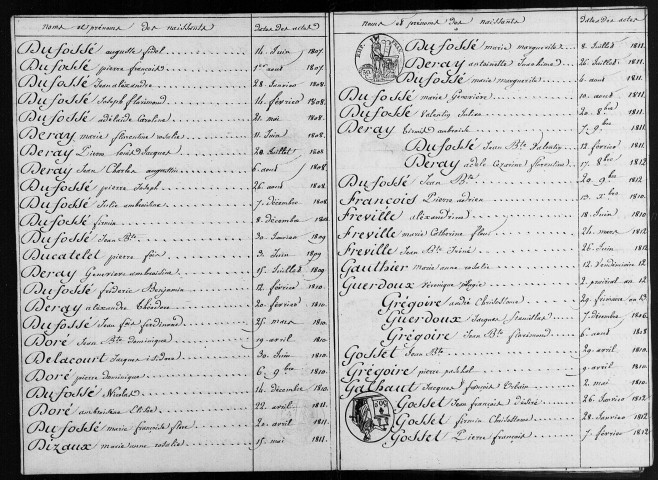 noms et prénoms des naissants dates des actes
Dufossé auguste fidel 14 Juin 1807.
Dufossé pierre françois 1er aout 1807.
Dufossé Jean alexandre 28 Janvier 1808.
Dufossé Joseph florimond 14 février 1808.
Dufossé adélaïde Caroline 21 mai 1808.
Deray marie florentine rosalie 11 Juin 1808.
Deray Pierre Louis Jacques 20 Juillet 1808.
Deray Jean Charles augustin 6 aout 1808.
Dufossé pierre Joseph 26 aout 1808.
Dufossé Julie ambroisine 7 décembre 1808.
Dufossé firmin 8 décembre
Dufossé Jean Bte 30 Janvier 1809
Ducatelet pierre 3 Juin 1809
Deray Genevieve ambroisine 15 Juillet 1809.
Dufossé frédéric Benjamin 12 février 1810.
Deray alexandre théodore 20 février 1810.
Dufossé Jean fois ferdinand 25 mars 1810.
Doré Jean Bte dominique 19 avril 1810.
Delacourt Jacques isidore 30 Juin 1810.
Doré pierre dominique 6 9bre 1810.
Dufossé Nicolas 14 décembre 1810.
Doré ambroisine 22 avril 1811.
Dufossé marie françoise flore 20 avril 1811.
Dizaux marie anne rosalie 15 mai 1811.
noms et prénoms des naissants dates des actes
Dufossé marie marguerite 8 Juillet 1811.
Deray antoinette Joséphine 26 Juillet 1811.
Dufossé marie marguerite 6 aout 1811.
Dufossé marie Geneviève 10 aout 1811.
Dufossé Valentin Julien 20 8bre 1811.
Deray ambroise 7 9bre 1811.
Dufossé Jean Bte Valentin 12 février 1811.
Deray adèle Cézarine florentine 17 8bre 1812
Dufossé Jean Bte 20 9bre 1812
François Pierre adrien 13 xbre 1810
Freville alexandrine 18 Juin 1810
Freville marie Catherine 24 mars 1812
Freville Jean Bte Iréné 26 Juin 1812.
Gaulthier marie anne rosalie 12 Vendemiaire 12
Guerdoux Véronique 2 prairial an 12
Grégoire andré 29 frimaire an 13
Guerdoux Jacques Stanislas 7 décembre 1806.
Grégoire Jean Bte florimond 6 aout 1808
Gosset Jean Bte 29 avril 1810.
Grégoire pierre paschal 9 avril 1810.
Galhaut Jacques françois Urbain 2 mai 1810.
Gosset Jean françois désiré 26 Janvier 1812
Gosset firmin 28 Janvier 1812
Gosset Pierre françois 7 février 1812